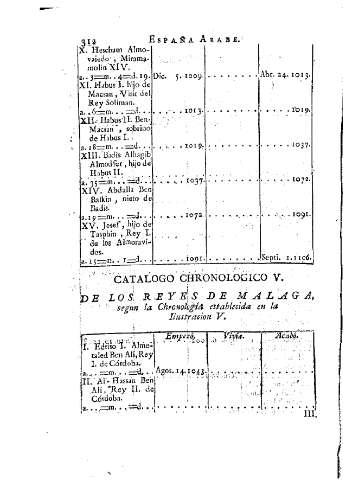 312 ESPAÑA ARABE.
X. Hescham Almo-
vaiedo, Mirama-
molin XIV.
a. 3=m...4=d. 19. Dic. 5. 1009. Abr. 24. 1013.
XI. Habus I. hijo de
Macsan, Visir del
Rey Soliman.
a...6=m...=d... 1013. 1019.
XII. Habus II. Ben-
Macsan, sobrino
de Habus I.
a. 18=m...=d... 1019. 1037.
XIII. Badis Alhagib
Almodfer, hijo de
Habus II.
a. 35=m...=d... 1037. 1072.
XIV. Abdalla Ben
Balkin, nieto de
Badis.
a. 19=m...=d... 1072. 1091.
XV. Josef, hijo de
Tasphin, Rey I.
de los Almoravi-
dos.
a. 15=m...1=d... 1091. Septi. 1. 1106.
CATALOGO CHRONOLOGICO V.
DE LOS REYES DE MALAGA,
segun la Chronología establecida en la
Ilustracion V.
Empezó. Vivia. Acabó.
I. Edriso I. Almo-
taled Ben Ali, Rey
I. de Córdoba.
a...=m...=d... Agos. 14. 1043.
II. Al-Hassan Ben
Ali, Rey II. de
Córdoba.
a...=m...=d...
III.